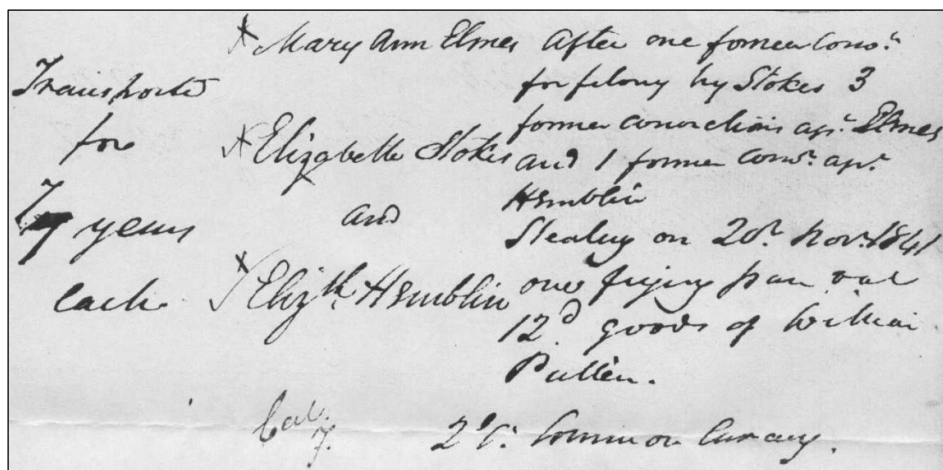 Transported
for
7 years
each
x Mary Ann Elmes
x Elizabeth Stokes
and
x Elizth Hamblin
After one former Convn
for felony by Stokes 3
former convictions agst Elmes
and 1 former Convn agst
Hamblin
Stealing on 20th Novr 1841
one frying pan val
12d goods of William
Pullen.
Cal. 7. 2d Ct. Common Larceny.